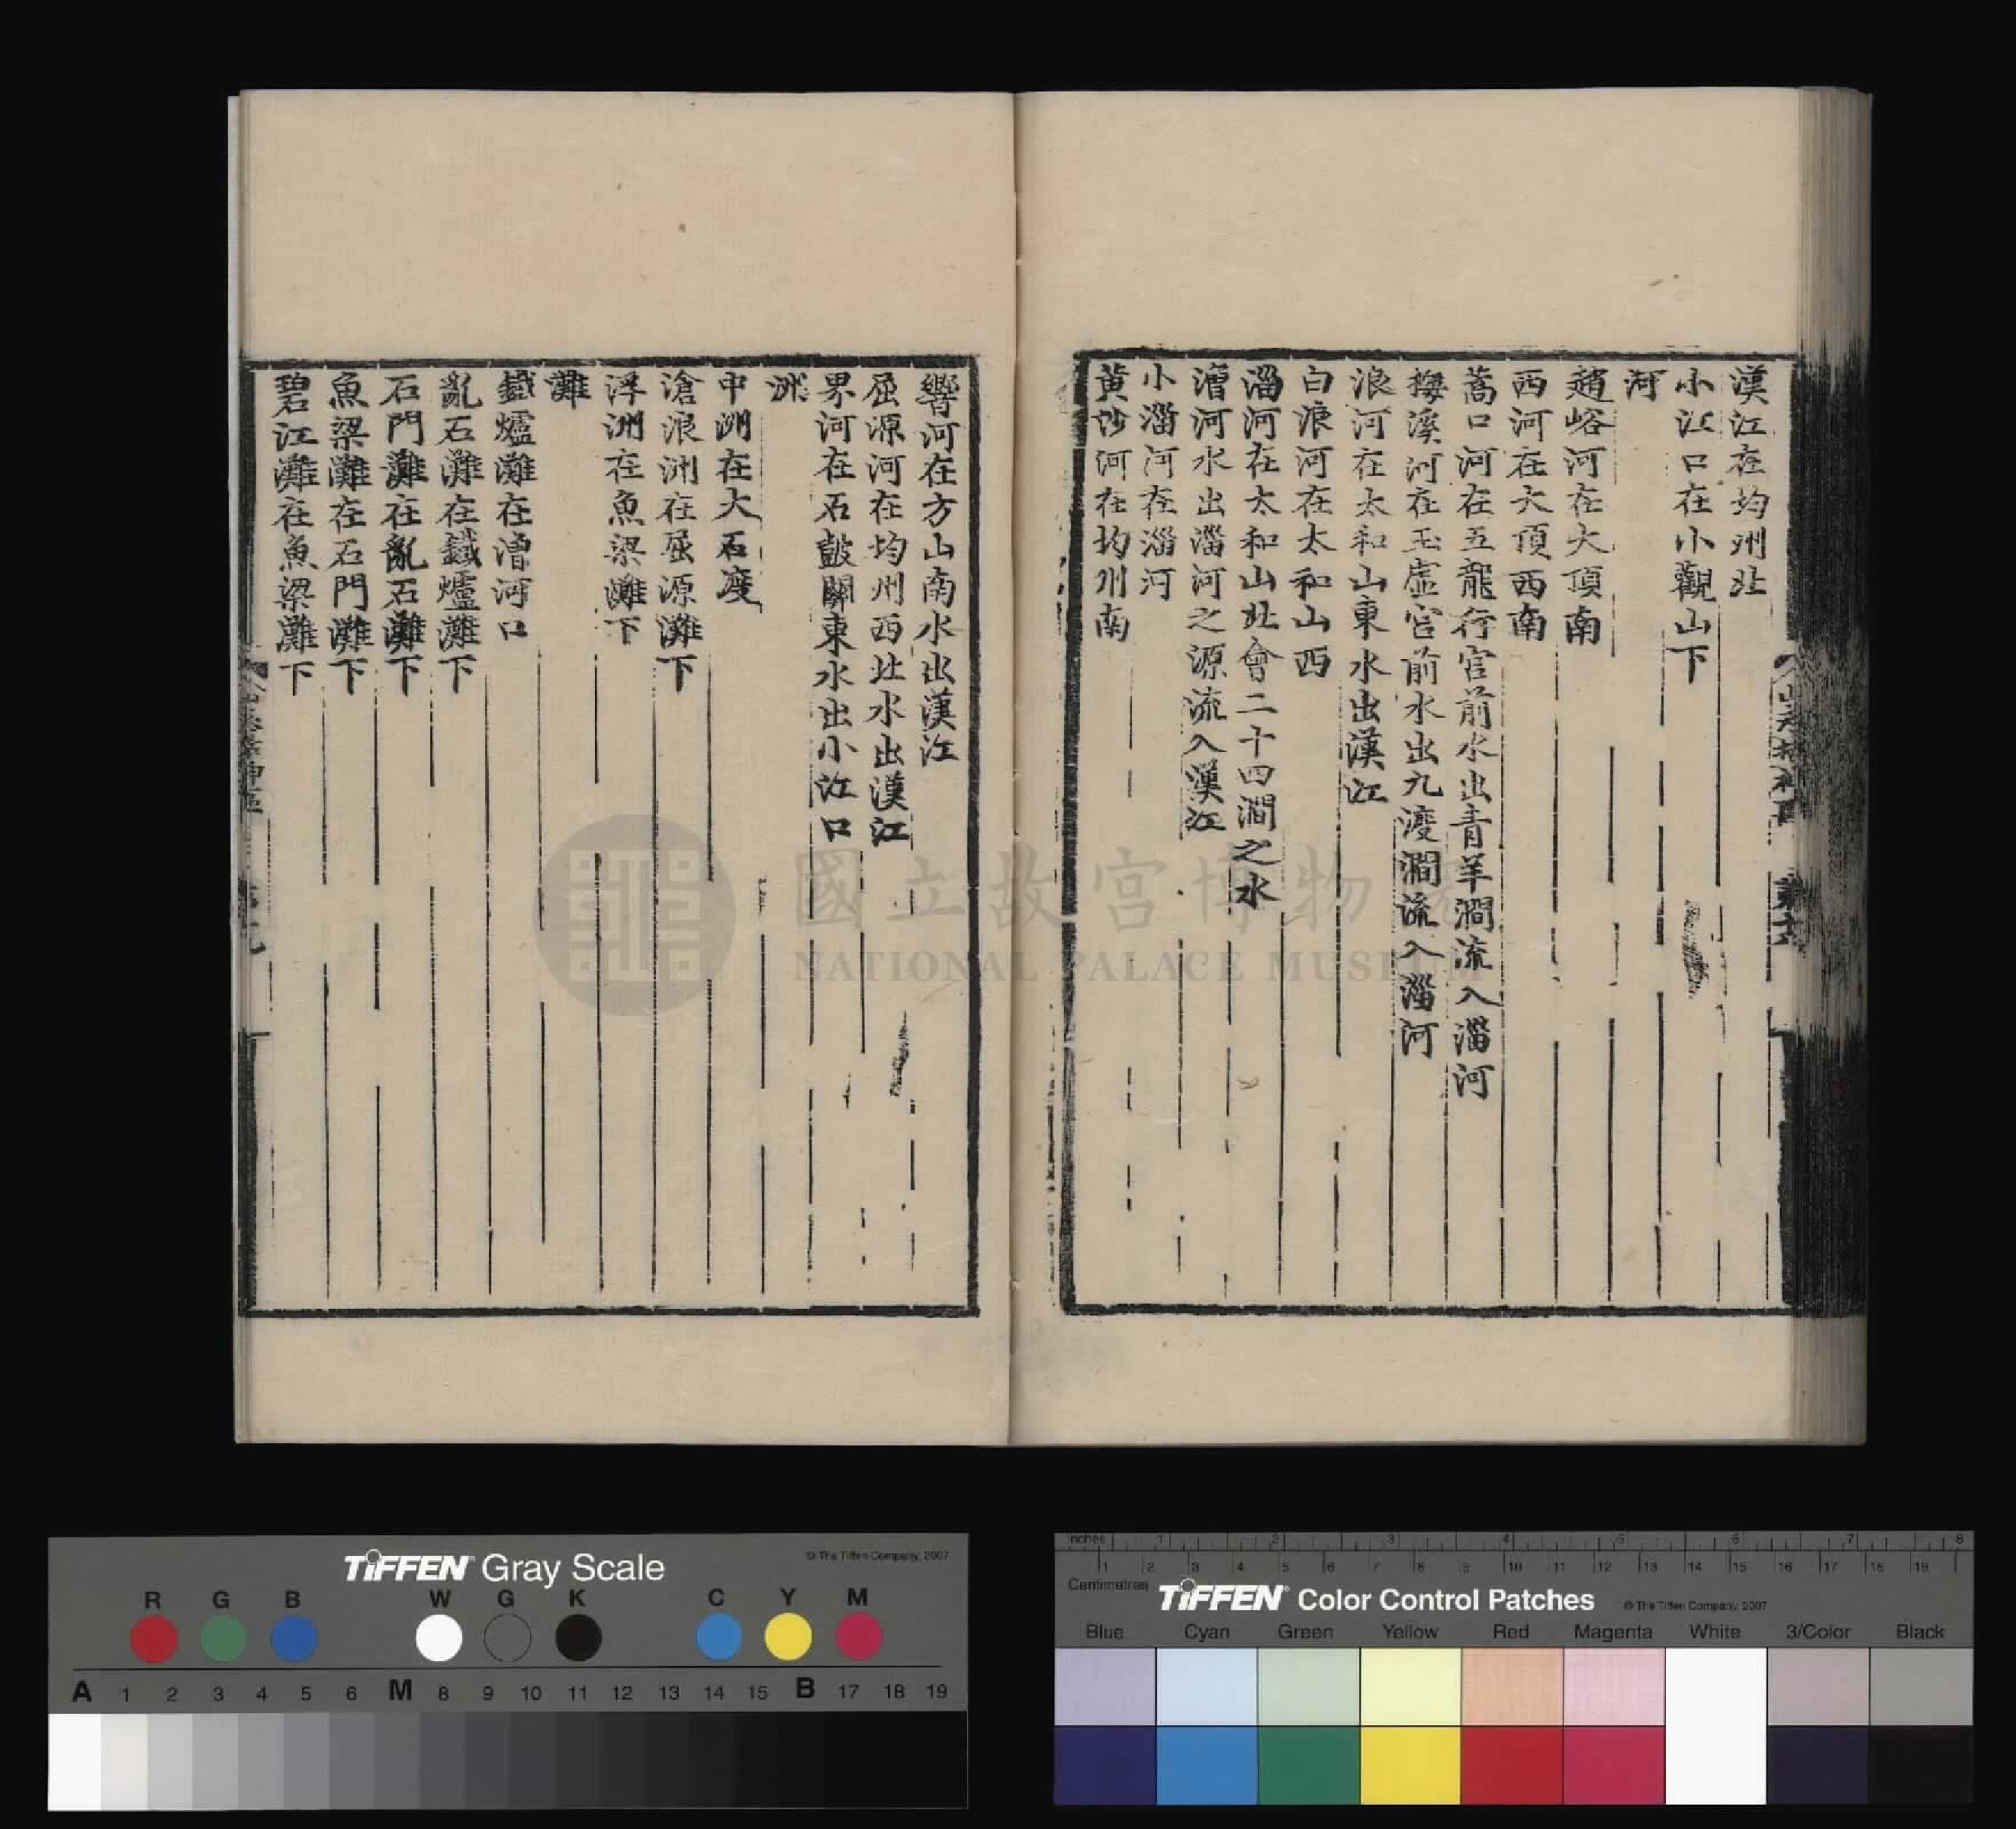 漢江在均州北
小江口在小觀山下
河
趙峪河在大頂南
西河在大頂西南
蒿口河在五龍行宮前水出青羊澗流入淄河
梅溪河在玉虛宮前水出九渡澗流入淄河
浪河在太和山東水出漢江
白浪河在太和山西
淄河在太和山北會二十四澗之水
漕河水出淄河之源流入漢江
小淄河在淄河
黃沙河在均州南
響河在方山南水出漢江
屈源河在均州西北水出漢江
界河在石鼓關東水出小江口
洲
中洲在大石渡
滄浪洲在屈源灘下
浮洲在魚梁灘下
灘
鐵爐灘在漕河口
亂石灘在鐵爐灘下
石門灘在亂石灘下
魚梁灘在石門灘下
碧江灘在魚梁灘下
國立故宮博物院
NATIONAL PALACE MUSEUM
TiFFEN Gray Scale
© The Tiffen Company, 2007
R G B W G K C Y M
A 1 2 3 4 5 6 M 8 9 10 11 12 13 14 15 B 17 18 19
Inches 1 2 3 4 5 6 7 8
Centimetres 1 2 3 4 5 6 7 8 9 10 11 12 13 14 15 16 17 18 19
TiFFEN Color Control Patches
© The Tiffen Company, 2007
Blue Cyan Green Yellow Red Magenta White 3/Color Black